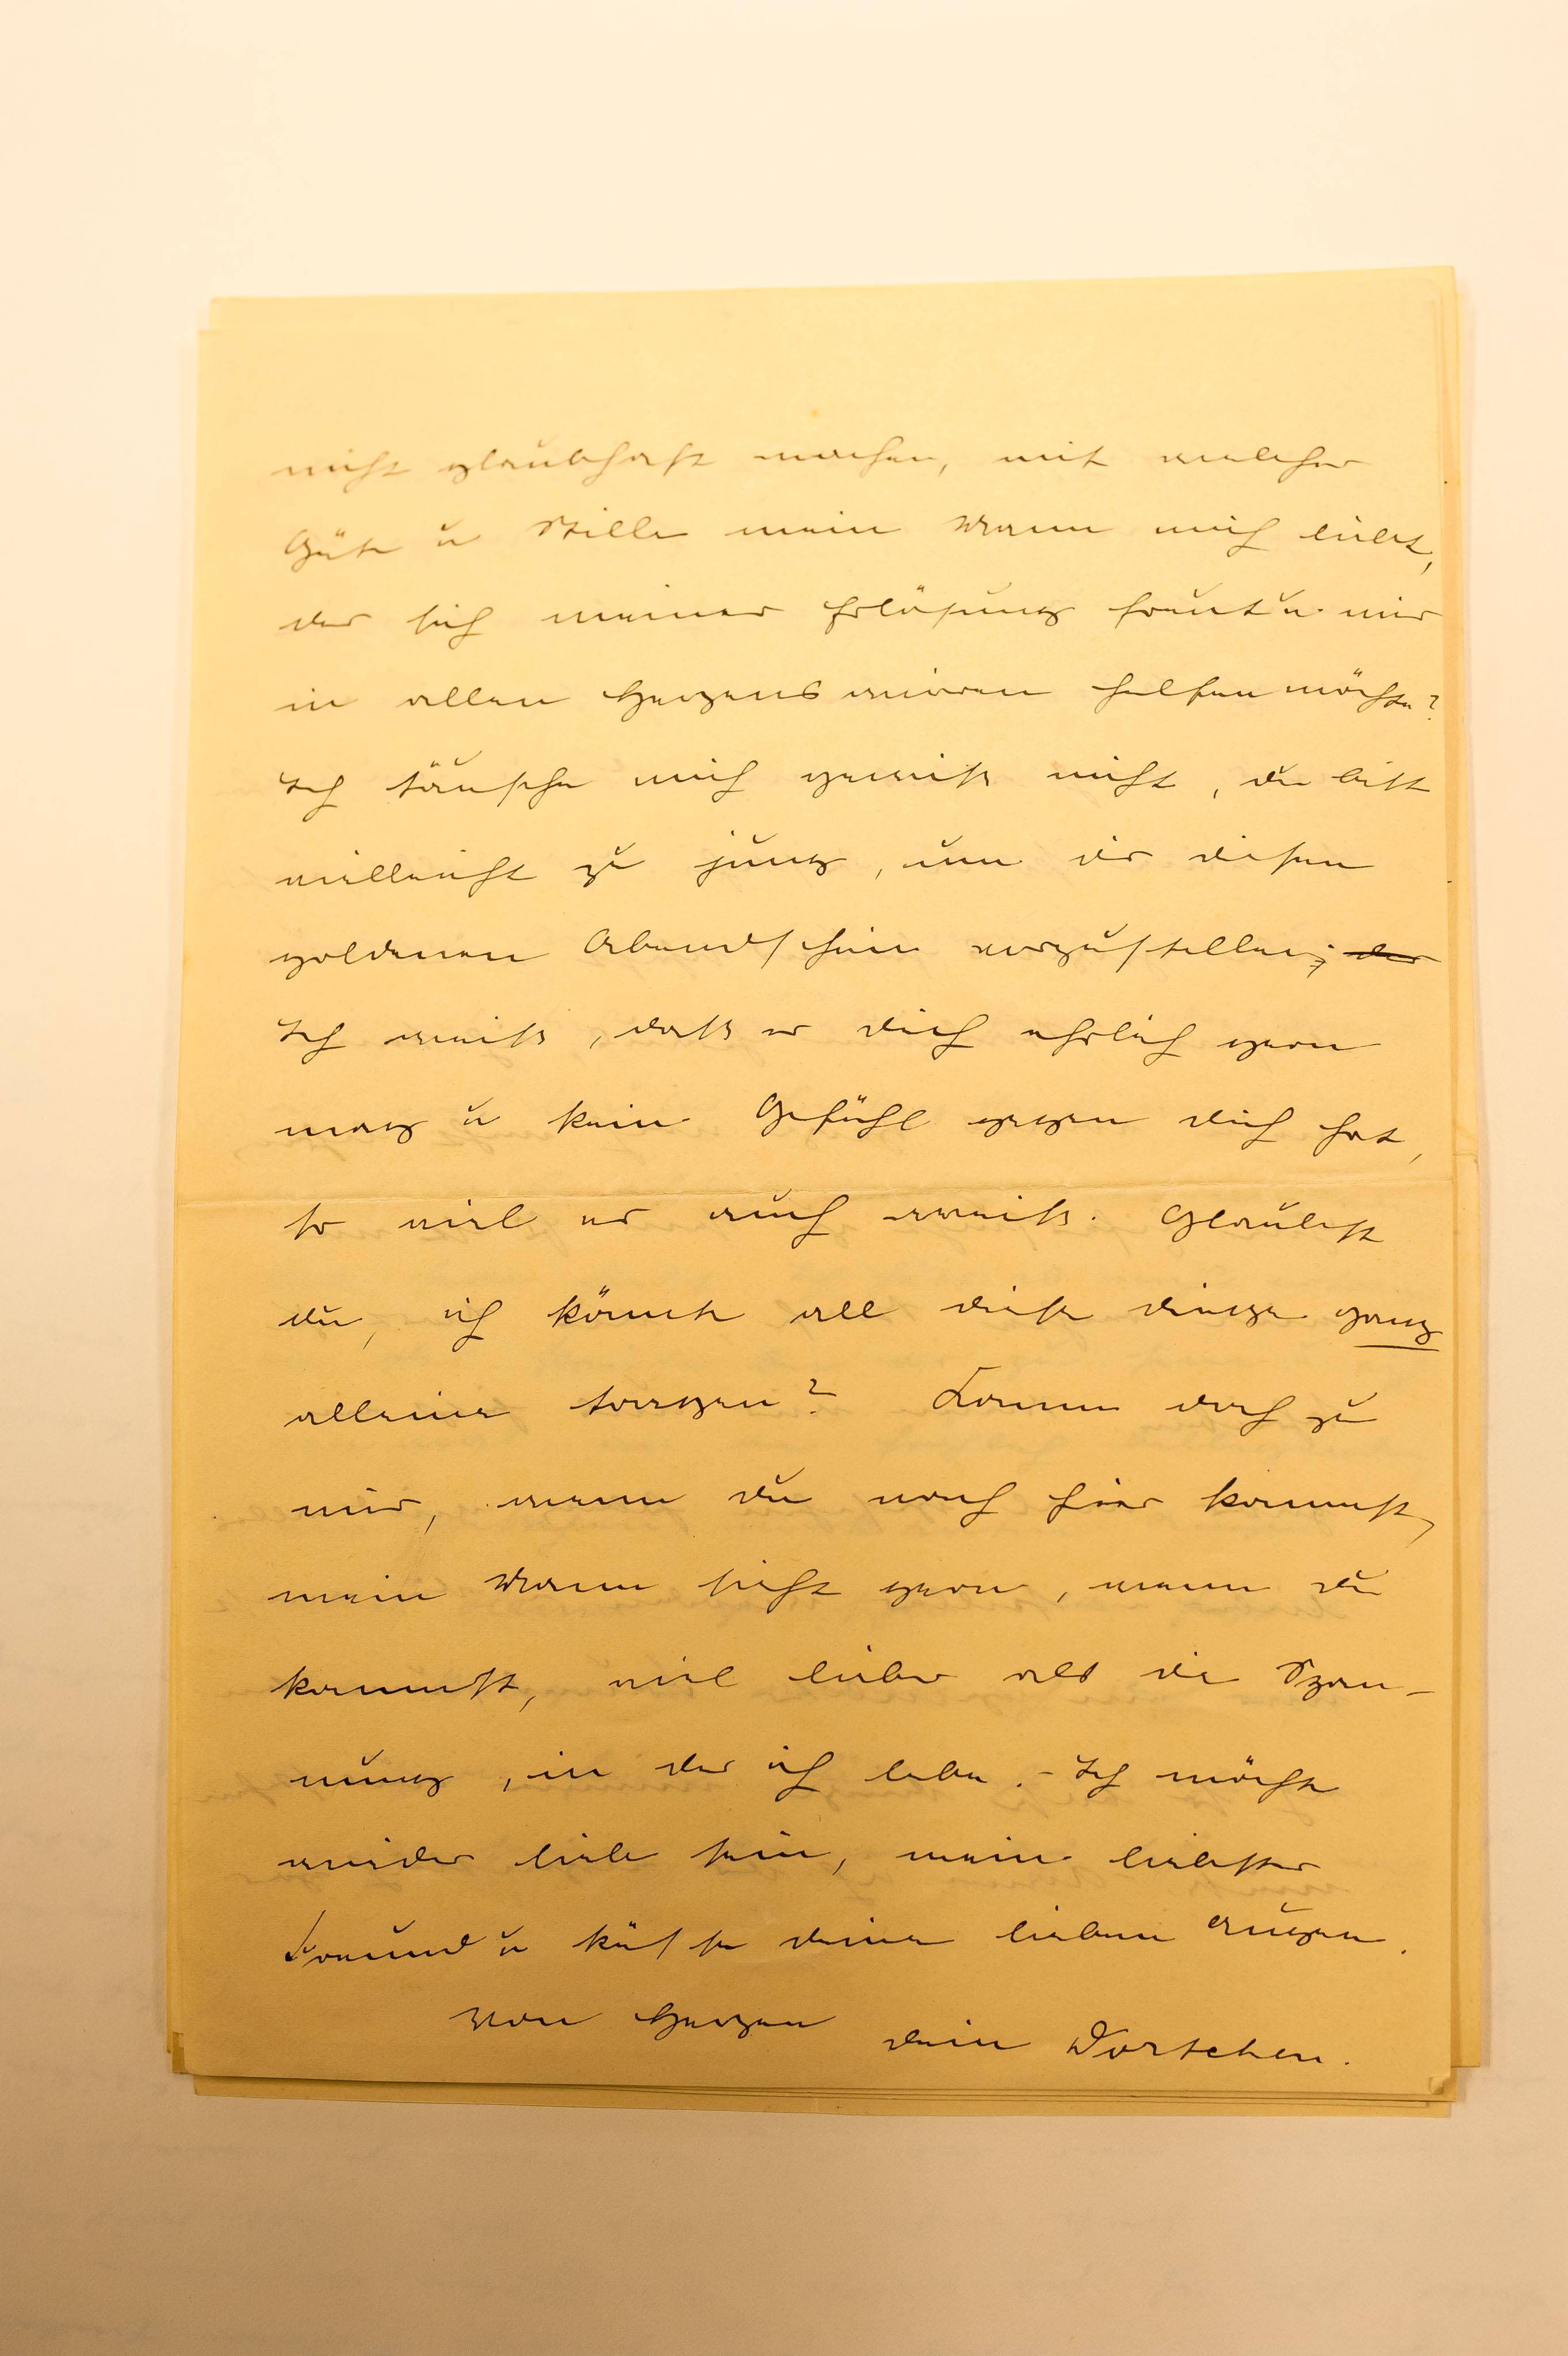 nicht glaubhaft machen, mit welcher
Güte u Stille mein Mann mich liebt,
der sich meiner Erlösung freut u. mir
in allen Herzenswirren helfen möchte?
Ich täusche mich gewiss nicht, du bist
vielleicht zu jung, um dir diesen
goldenen Abendschein vorzustellen; der
Ich weiss, dass er dich ehrlich gern
mag u kein Gefühl gegen dich hat,
so viel er auch weiss. Glaubst
du, ich könnte all diese dinge ganz
alleine tragen? Komm doch zu
mir, wenn du nach hier kommst,
mein Mann sieht gern, wenn du
kommst, viel lieber als die Span-
nung, in der ich lebe. - Ich möchte
wieder liebe sein, mein liebster
Freund u küsse deine lieben Augen.
Von Herzen dein Dortchen.